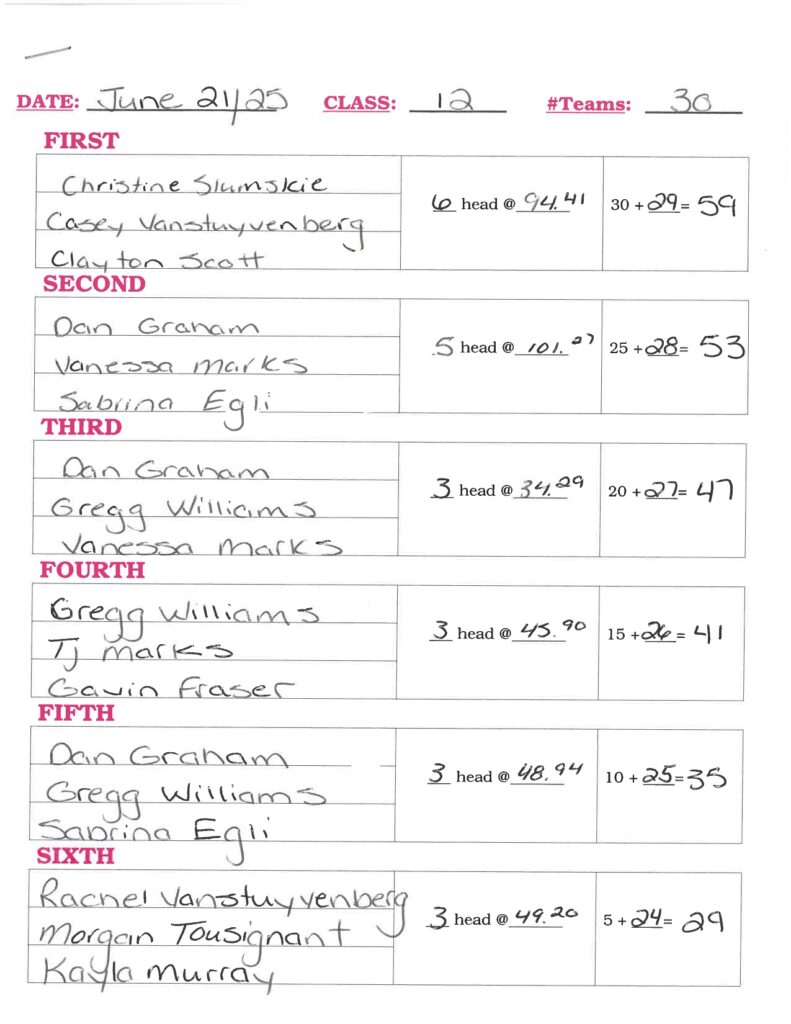 DATE: June 21/25 CLASS: 12 #Teams: 30
FIRST
Christine Slumskie
Casey Vanstuyvenberg
Clayton Scott
6 head @ 94.41
30 + 29 = 59
SECOND
Dan Graham
Vanessa Marks
Sabrina Egli
5 head @ 101.27
25 + 28 = 53
THIRD
Dan Graham
Gregg Williams
Vanessa Marks
3 head @ 34.29
20 + 27 = 47
FOURTH
Gregg Williams
Tj Marks
Gavin Fraser
3 head @ 45.90
15 + 26 = 41
FIFTH
Dan Graham
Gregg Williams
Sabrina Egli
3 head @ 48.94
10 + 25 = 35
SIXTH
Rachel Vanstuyvenberg
Morgan Tousignant
Kayla Murray
3 head @ 49.20
5 + 24 = 29